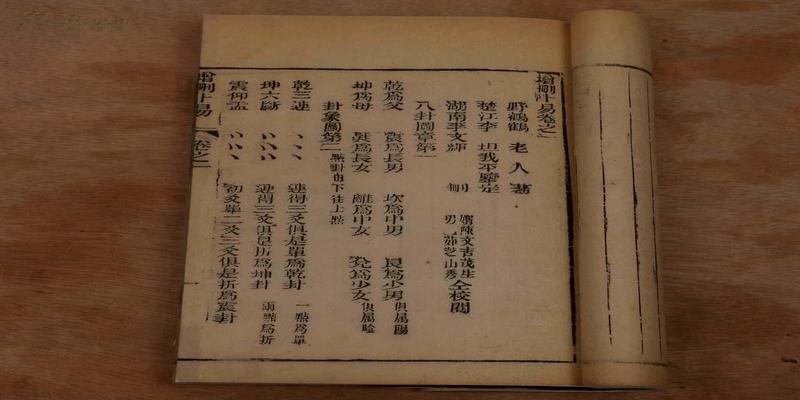 增刪卜易卷之一
野鶴老人著
楚江李坦我平鑒定
湖南李文輝
婿陳文吉茂生
男 山秀
全校閱
八卦圖章第一
乾爲父 震爲長男 坎爲中男 艮爲少男 俱屬陽
坤爲母 巽爲長女 離爲中女 兌爲少女 俱屬陰
卦象圖第二 點卦由下往上點
乾三連 、、、 連得三爻俱是單爲乾卦 一點爲單
坤六斷 連得三爻俱是折爲坤卦 兩點爲折
震仰盂 初爻單二爻三爻俱是折爲震卦
增刪卜易 卷之一